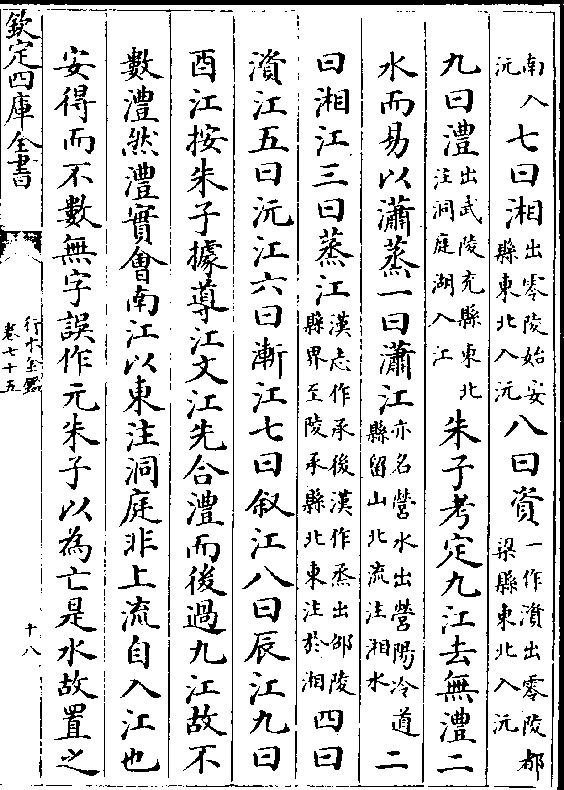 南入沅七曰湘出零陵始安縣東北入沅八曰資一作澬出零陵都梁縣東北入沅
九曰澧出武陵充縣東北注洞庭湖入江朱子考定九江去無澧二
水而易以瀟蒸一曰瀟江亦名營水出營陽泠道縣留山北流注湘水二
曰湘江三曰蒸江漢志作承後漢作烝出邵陵縣界至陵承縣北東注於湘四曰
澬江五曰沅江六曰漸江七曰叙江八曰辰江九曰
酉江按朱子據導江文江先合澧而後過九江故不
數澧然澧實會南江以東注洞庭非上流自入江也
安得而不數無字誤作元朱子以為亡是水故置之
欽定四庫全書
行水金鑑
卷七十五
十八